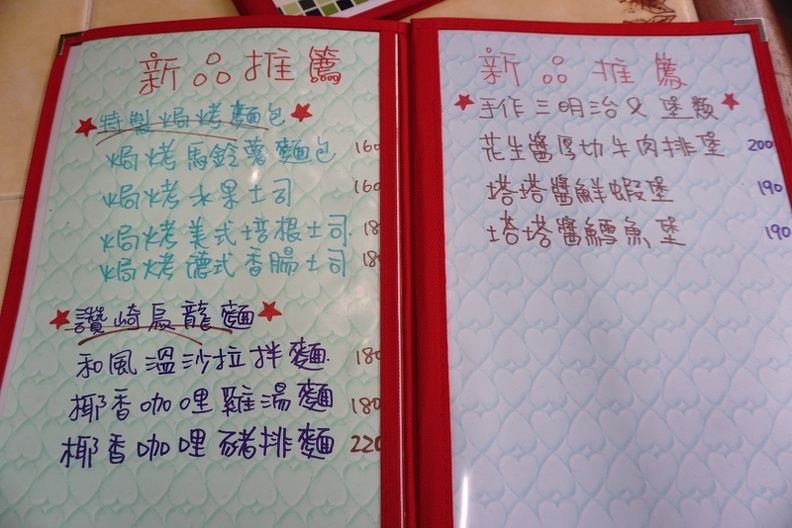 新品推薦
特製焗烤麵包
焗烤馬鈴薯麵包 160
焗烤水果土司 160
焗烤美式培根土司 18
焗烤德式香腸土司 18
讚崎烏龍麵
和風溫沙拉拌麵 180
椰香咖哩雞湯麵 180
椰香咖哩豬排麵 220
新品推薦
手作三明治&堡類
花生醬厚切牛肉排堡 200
塔塔醬鮮蝦堡 190
塔塔醬鱈魚堡 190